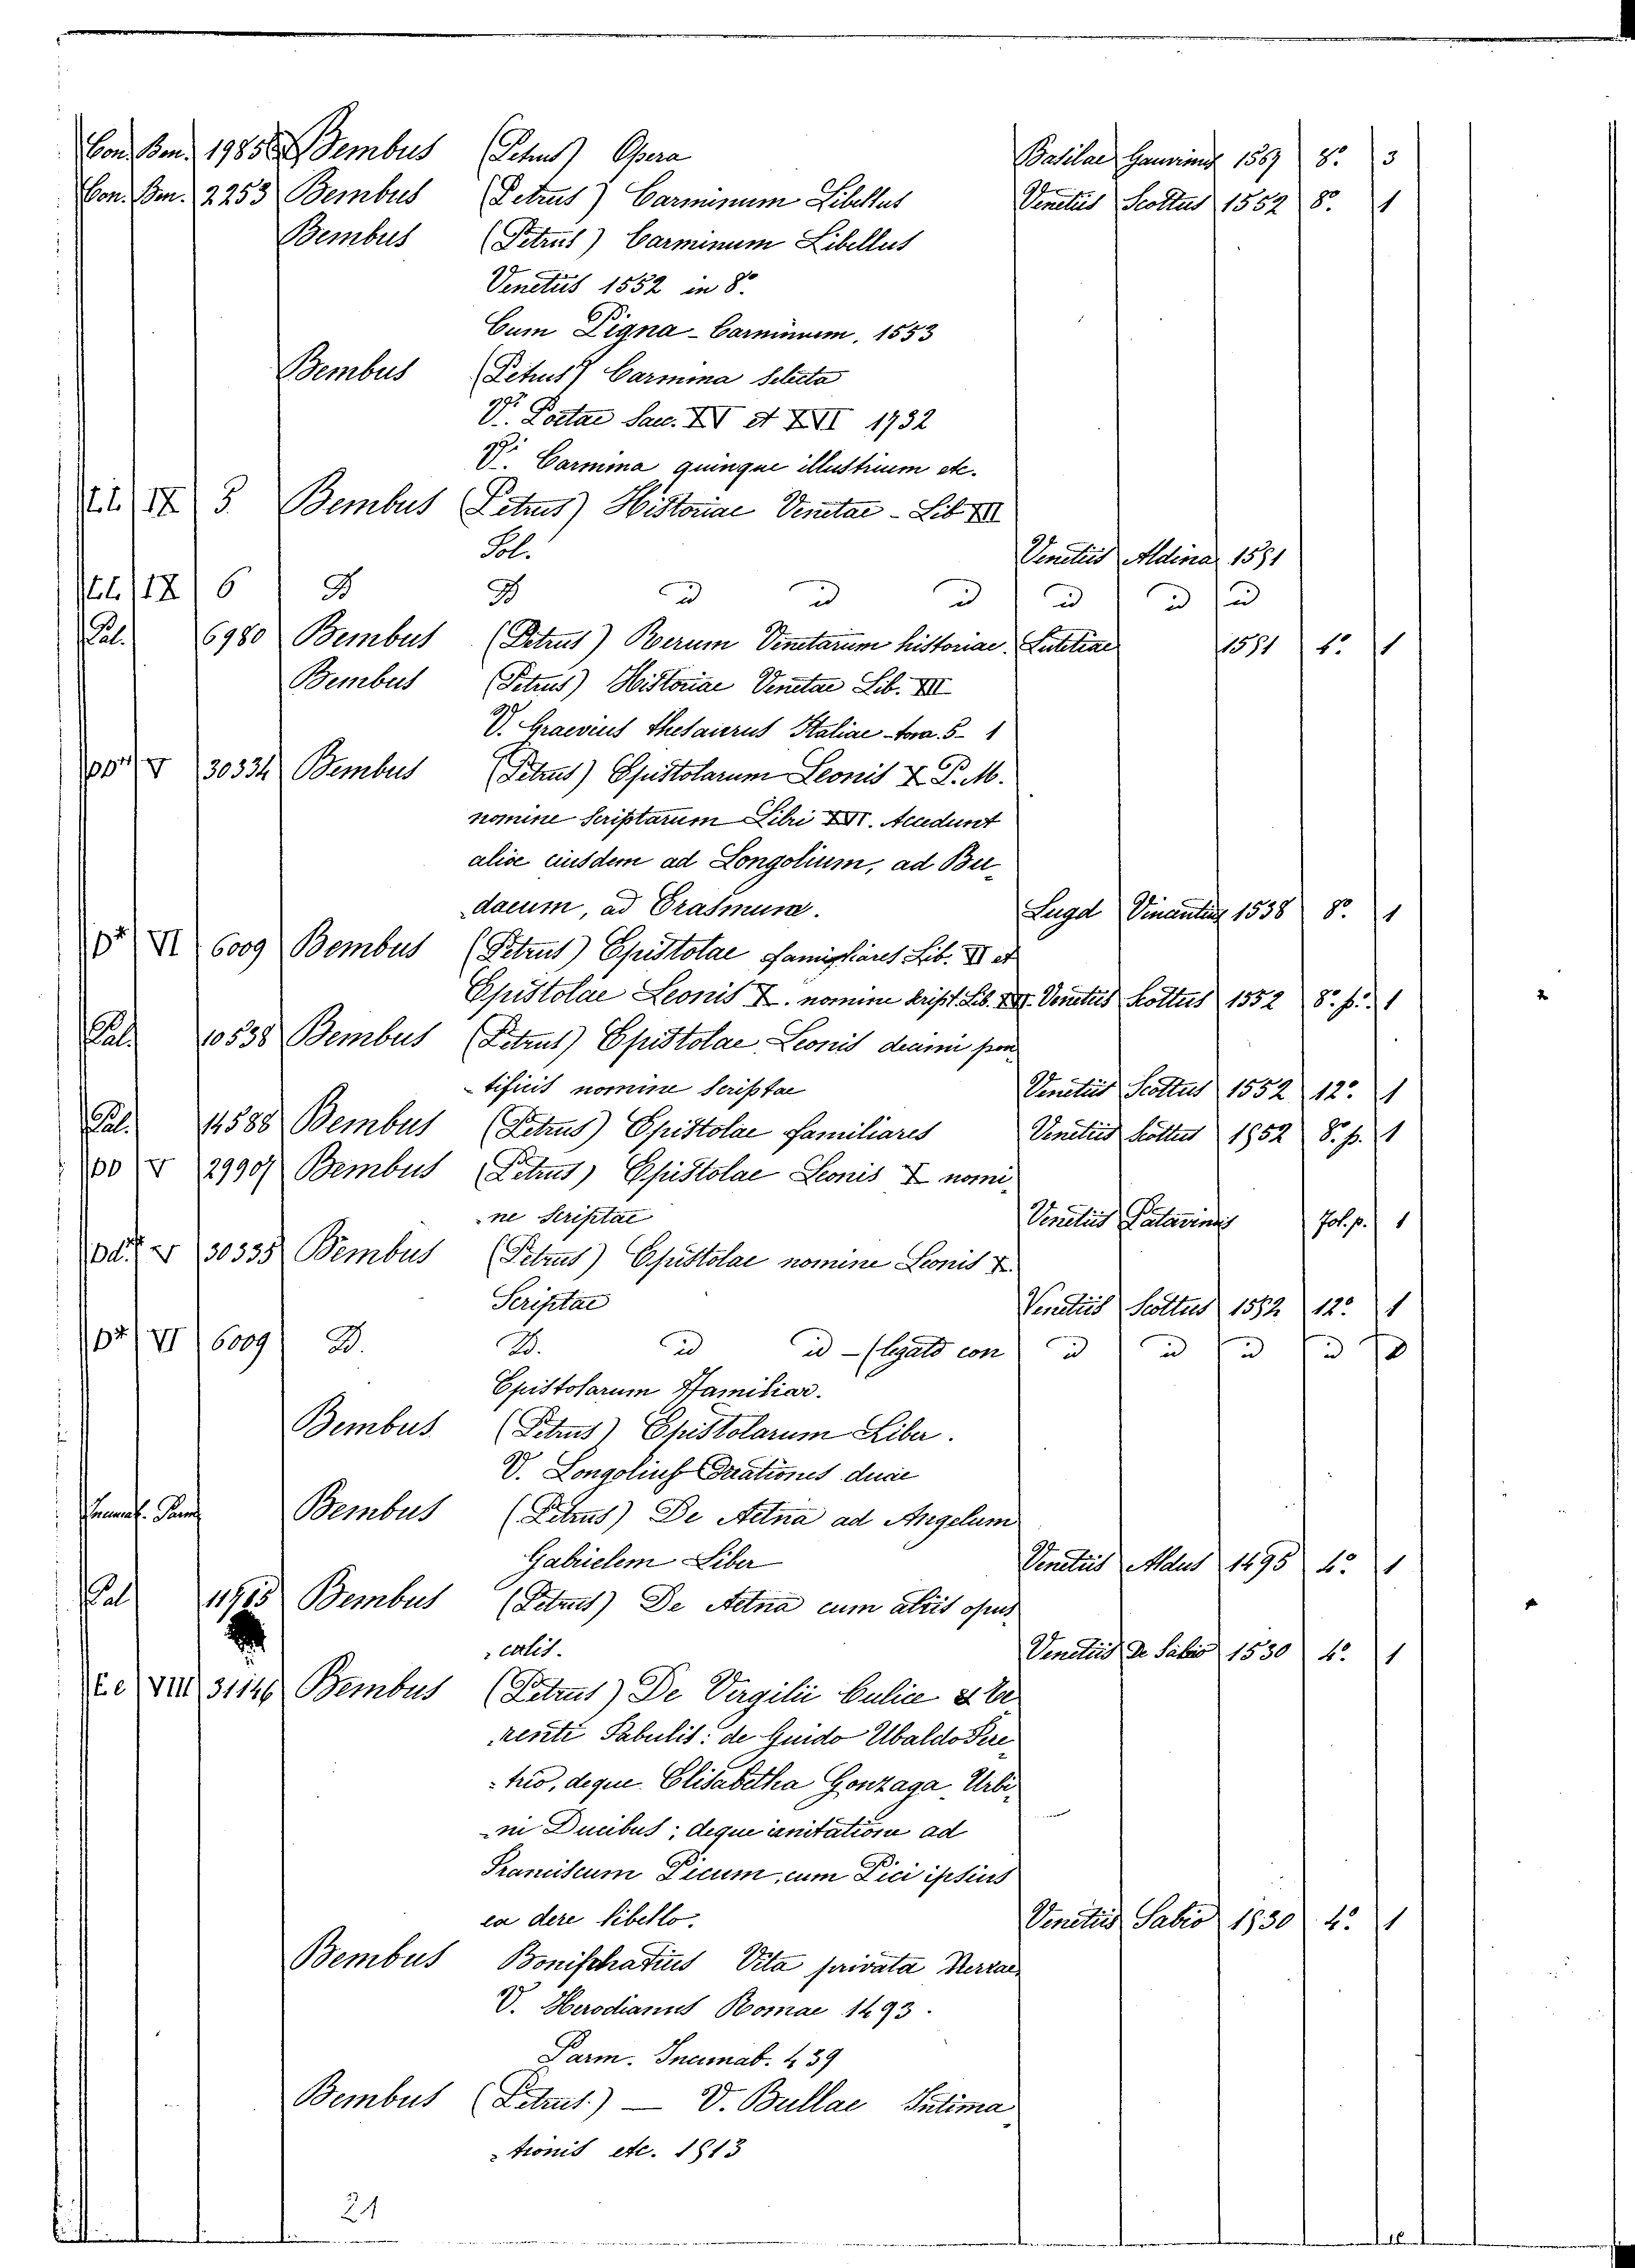 Con. Ben. 19858 Bembus (Petrus) Opera Basilae 1567 8.º 3
Con. Ben. 2253 Bembus (Petrus) Carminum Libellus Venetiis Scottus 1552 8º. 1
Bembus (Petrus) Carminum Libellus
Venetiis 1552 in 8º.
Cum Pigna - Carminum. 1553
Bembus (Petrus) Carmina Selecta
V. Poetae Saec. XV et XVI 1732
V. Carmina quinque illustrium etc.
IX 5 Bembus Petrus) Historiae Venetae - Lib XII
Fol. Venetiis Aldina 1551
IX 6 D D id id id id id id
Pal. 6980 Bembus (Petrus) Rerum Venetarum historiae. Lutetiae 1551 4º 1
Bembus (Petrus) Historiae Venetae Lib. XII
V. Graevius thesaurus Italiae - tom. 5 - 1
V 30334 Bembus (Petrus) Epistolarum Leonis X P. M.
nomine Scriptarum Libri XVI. Accedunt
aliae eiusdem ad Longolium, ad Bu-
-daeum, ad Erasmum. Lugd Vincentius 1538 8º. 1
VI 6009 Bembus (Petrus) Epistolae famigliares Lib. VI et
Epistolae Leonis X. nomine script. Lib. XVI. Venetiis Scottus 1552 8º. p. 1
Pal. 10538 Bembus (Petrus) Epistolae Leonis decimi pon-
-tificis nomine Scriptae Venetiis Scottus 1552 12º. 1
Pal. 14588 Bembus (Petrus) Epistolae familiares Venetiis Scottus 1552 8º. p. 1
V 29907 Bembus (Petrus) Epistolae Leonis X nomi-
-ne Scriptae Venetiis Patavinus fol. p. 1
V 30335 Bembus (Petrus) Epistolae nomine Leonis X.
Scriptae Venetiis Scottus 1552 12º 1
VI 6009 D. D. id id - (legato con id id id id
Epistolarum Familiar.
Bembus (Petrus) Epistolarum Liber.
V. Longolius Orationes duae
Incunab. Parm. Bembus (Petrus) De Aetna ad Angelum
Gabrielem Liber Venetiis Aldus 1495 4º 1
Pal 11915 Bembus (Petrus) De Aetna cum aliis opus-
-culis. Venetiis De Sabio 1530 4º. 1
VIII 31146 Bembus (Petrus) De Virgilii Culice et te-
-rentii Fabulis: de Guido Ubaldo Fere-
-trio, deque Elisabetha Gonzaga Urbi-
-ni Ducibus; deque imitatione ad
Franciscum Picum, cum Pici ipsius
ea dere libello. Venetiis Sabio 1530 4º. 1
Bembus Bonifphatius Vita privata
V. Herodianus Romae 1493.
Parm. Incunab. 439
Bembus (Petrus) — V. Bullae Intima-
-tionis etc. 1513
21